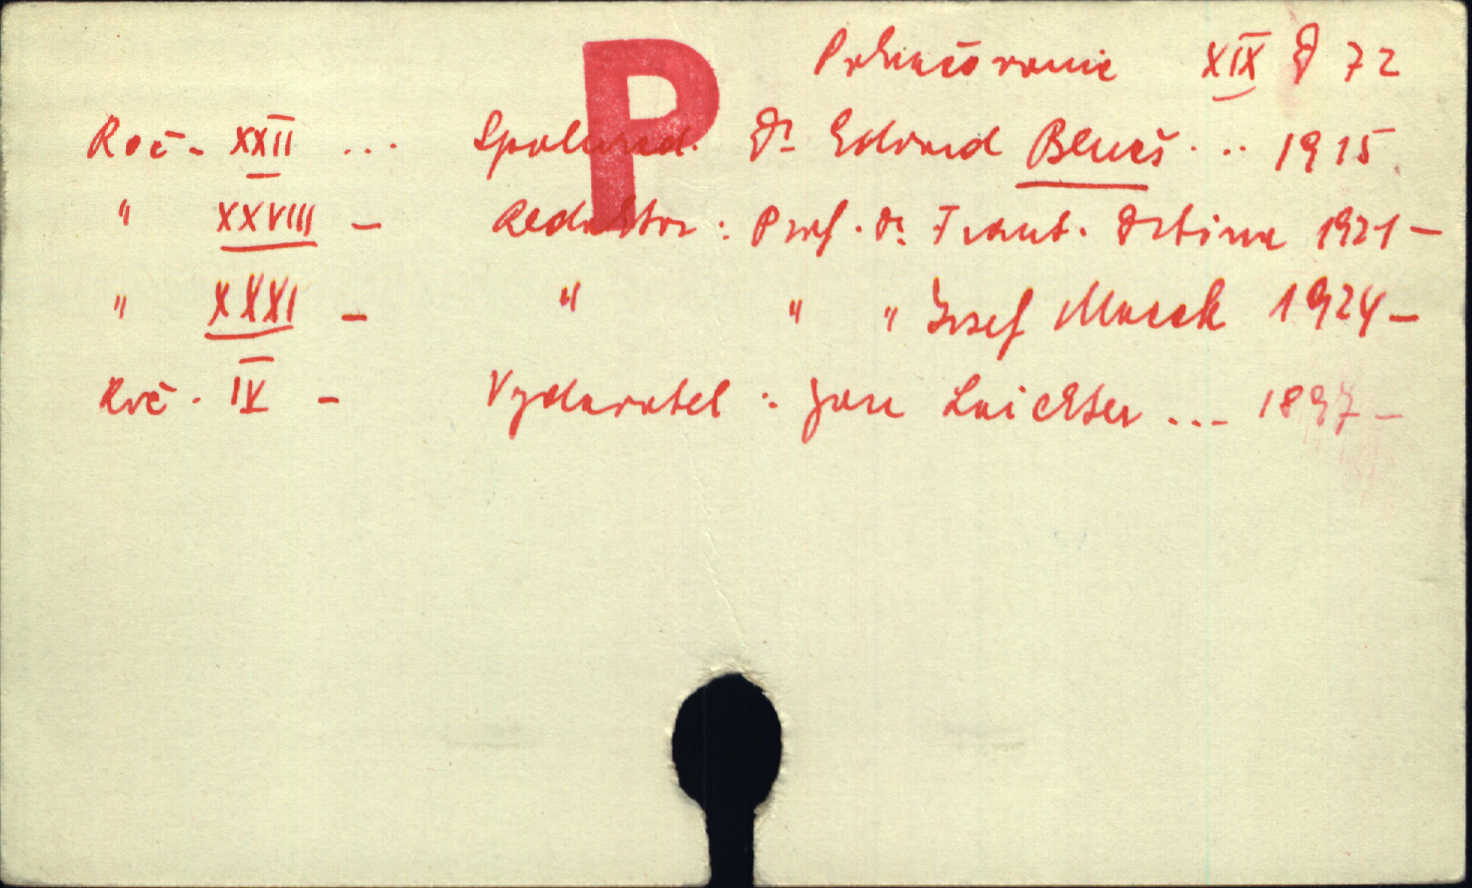 P
Pokračovanie XIX D 72
Roč. XXII ... Spolured. Dr Edvard Beneš ... 1915
" XXVIII — Redaktor: Prof. Dr. Frant. Drtina 1921 —
" XXXI — " " " Josef Macek 1924 —
Roč. IV — Vydavatel: Jan Laichter ... 1897 —